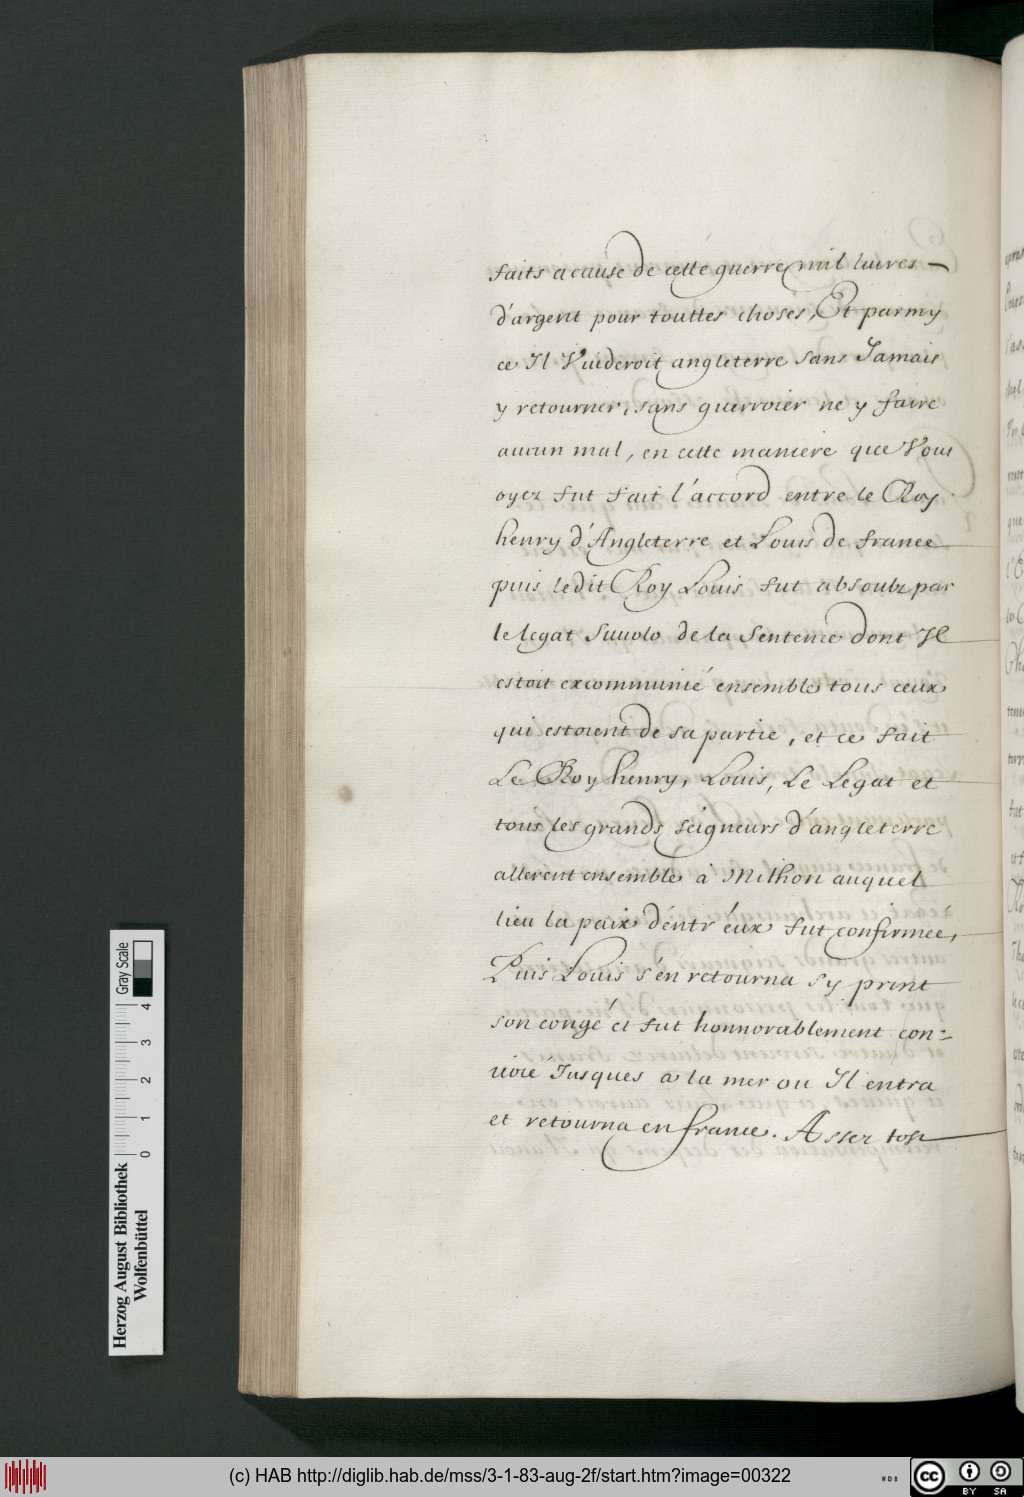 faits acause de cette guerre mil livres
d'argent pour touttes choses, Et parmy
ce Il Vuideroit angleterre sans Jamais
y retourner, sans guerroier ne y faire
aucun mal, en cette maniere que Vous
oyez fut fait l'accord entre le Roy
henry d'Angleterre et Louis de france
puis ledit Roy Louis fut absoubz par
le legat Suuolo de la Sentence dont Il
estoit excommunié ensemble tous ceux
qui estoient de sa partie, et ce fait
Le Roy henry, Louis, Le Legat et
tous les grands seigneurs d'angleterre
allerent ensemble à Mithon auquel
lieu la paix d'entr'eux fut confirmeé,
Puis Louis s'en retourna sy print
son congé et fut honnorablement con=
uoié Jusques a la mer ou Il entra
et retourna en france. Assez tost
Herzog August Bibliothek
Wolfenbüttel
0 1 2 3 4
Gray Scale
(c) HAB http://diglib.hab.de/mss/3-1-83-aug-2f/start.htm?image=00322
cc BY SA